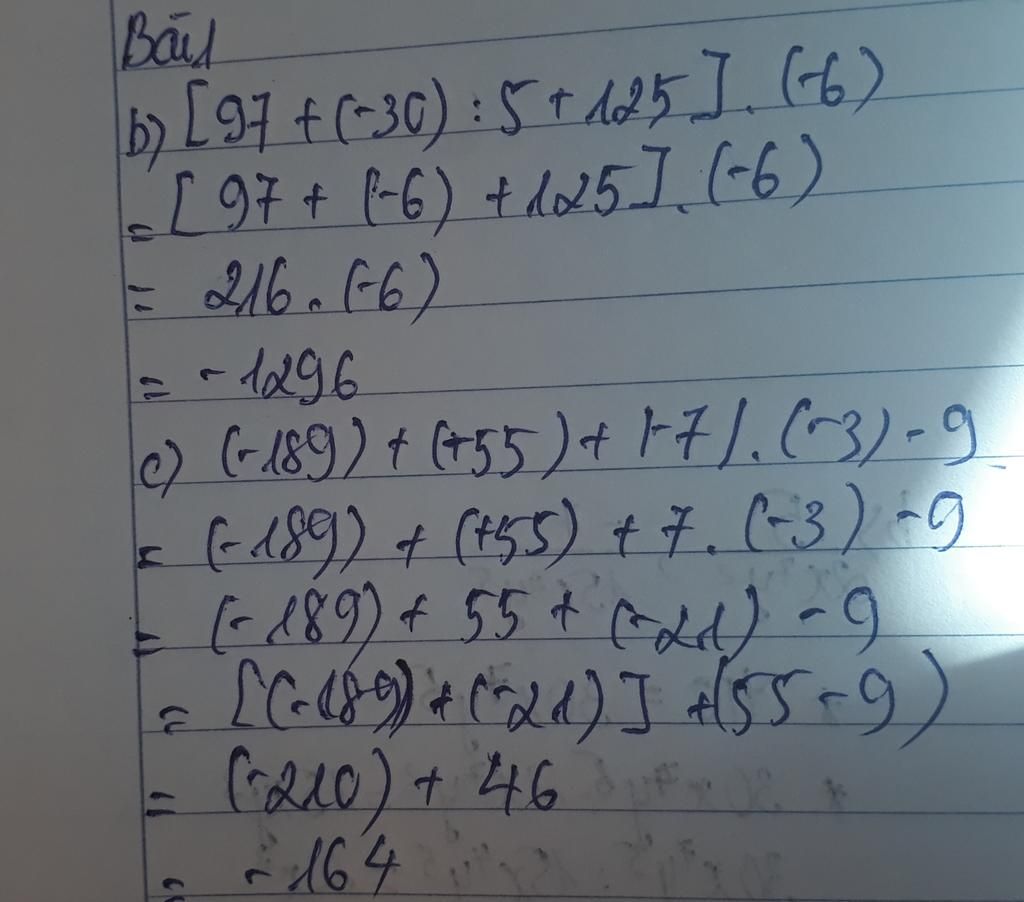 Bài 1
b) [97 + (-30) : 5 + 125] . (-6)
= [97 + (-6) + 125] . (-6)
= 216 . (-6)
= -1296
c) (-189) + (+55) + |-7| . (-3) - 9
= (-189) + (+55) + 7 . (-3) - 9
= (-189) + 55 + (-21) - 9
= [(-189) + (-21)] + (55 - 9)
= (-210) + 46
= -164